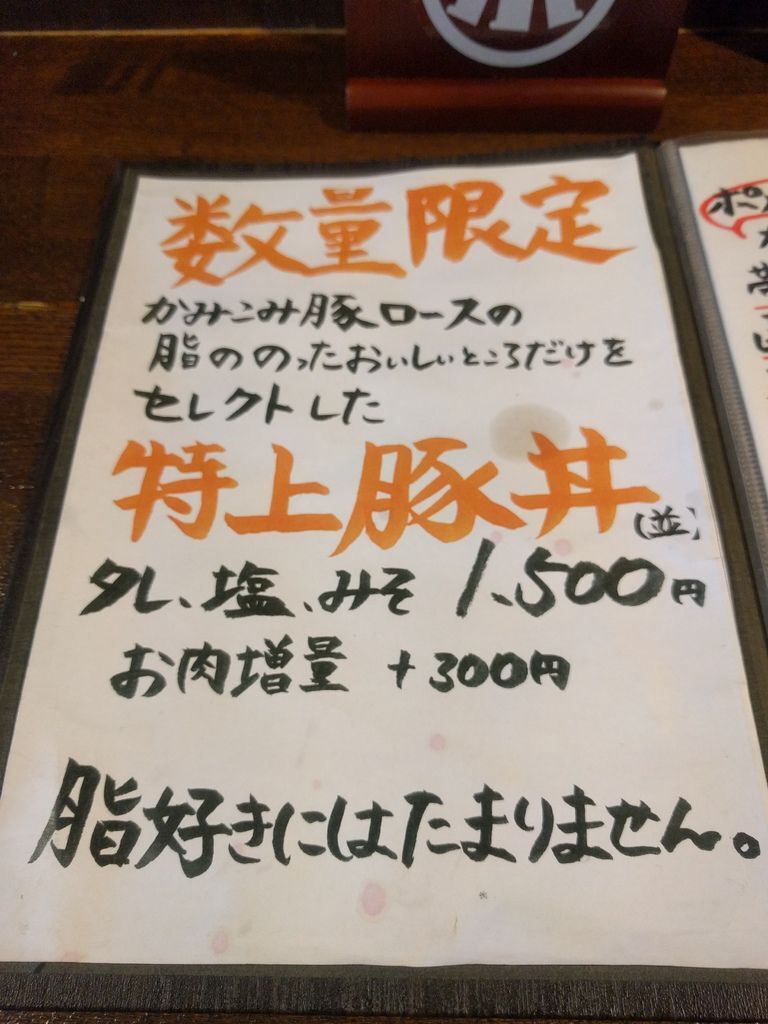 数量限定
かみこみ豚ロースの
脂ののったおいしいところだけを
セレクトした
特上豚丼(並)
タレ、塩、みそ 1,500円
お肉増量 +300円
脂好きにはたまりません。